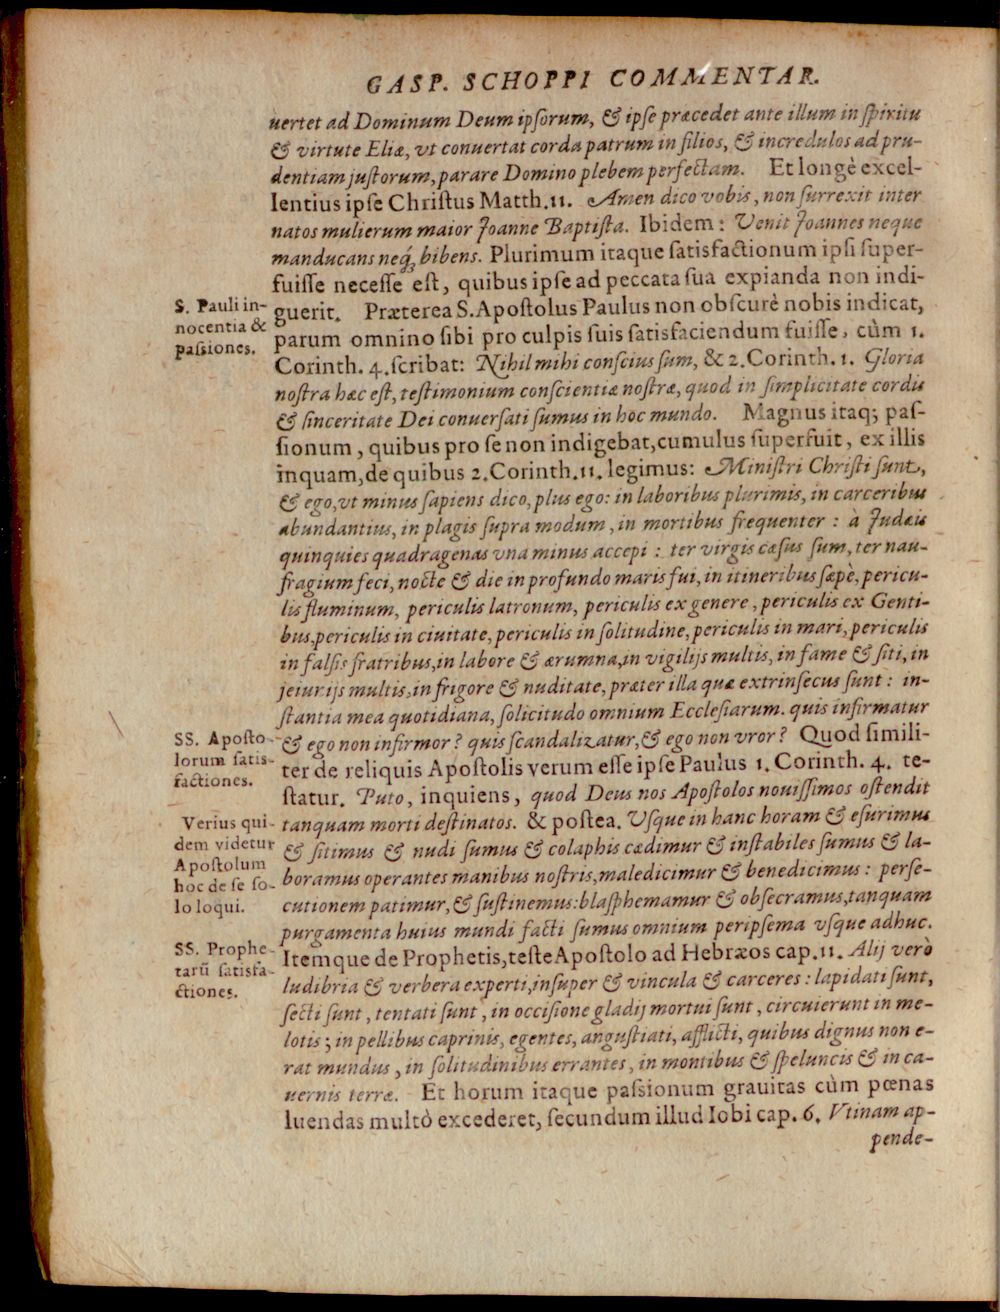 GASP. SCHOPPI COMMENTAR.
uertet ad Dominum Deum ipsorum, & ipse præcedet ante illum in spiritu
& virtute Eliæ, vt conuertat corda patrum in filios, & incredulos ad pru-
dentiam justorum, parare Domino plebem perfectam. Et longè excel-
lentius ipse Christus Matth. 11. Amen dico vobis, non surrexit inter
natos mulierum maior Joanne Baptista. Ibidem: Venit Joannes neque
manducans neq; bibens. Plurimum itaque satisfactionum ipsi super-
fuisse necesse est, quibus ipse ad peccata sua expianda non indi-
guerit. Præterea S. Apostolus Paulus non obscurè nobis indicat,
parum omnino sibi pro culpis suis satisfaciendum fuisse, cùm 1.
Corinth. 4. scribat: Nihil mihi conscius sum, & 2. Corinth. 1. Gloria
nostra hæc est, testimonium conscientiæ nostræ, quod in simplicitate cordis
& sinceritate Dei conuersati sumus in hoc mundo. Magnus itaq; pas-
sionum, quibus pro se non indigebat, cumulus superfuit, ex illis
inquam, de quibus 2. Corinth. 11. legimus: Ministri Christi sunt,
& ego, vt minus sapiens dico, plus ego: in laboribus plurimis, in carceribus
abundantius, in plagis supra modum, in mortibus frequenter: à Judæis
quinquies quadragenas vna minus accepi: ter virgis cæsus sum, ter nau-
fragium feci, nocte & die in profundo maris fui, in itineribus sæpè, pericu-
lis fluminum, periculis latronum, periculis ex genere, periculis ex Genti-
bus, periculis in ciuitate, periculis in solitudine, periculis in mari, periculis
in falsis fratribus, in labore & ærumna, in vigilijs multis, in fame & siti, in
jeiunijs multis, in frigore & nuditate, præter illa quæ extrinsecus sunt: in-
stantia mea quotidiana, solicitudo omnium Ecclesiarum. quis infirmatur
& ego non infirmor? quis scandalizatur, & ego non vror? Quod simili-
ter de reliquis Apostolis verum esse ipse Paulus 1. Corinth. 4. te-
statur. Puto, inquiens, quod Deus nos Apostolos nouissimos ostendit
tanquam morti destinatos. & postea. Vsque in hanc horam & esurimus
& sitimus & nudi sumus & colaphis cædimur & instabiles sumus & la-
boramus operantes manibus nostris, maledicimur & benedicimus: perse-
cutionem patimur, & sustinemus: blasphemamur & obsecramus, tanquam
purgamenta huius mundi facti sumus omnium peripsema vsque adhuc.
Itemque de Prophetis, teste Apostolo ad Hebræos cap. 11. Alij verò
ludibria & verbera experti, insuper & vincula & carceres: lapidati sunt,
secti sunt, tentati sunt, in occisione gladij mortui sunt, circuierunt in me-
lotis; in pellibus caprinis, egentes, angustiati, afflicti, quibus dignus non e-
rat mundus, in solitudinibus errantes, in montibus & speluncis & in ca-
uernis terræ. Et horum itaque passionum grauitas cùm pœnas
luendas multò excederet, secundum illud Iobi cap. 6. Vtinam ap-
pende-
S. Pauli in-
nocentia &
passiones.
SS. Aposto-
lorum satis-
factiones.
Verius qui-
dem videtur
Apostolum
hoc de se so-
lo loqui.
SS. Prophe-
tarũ satisfa-
ctiones.